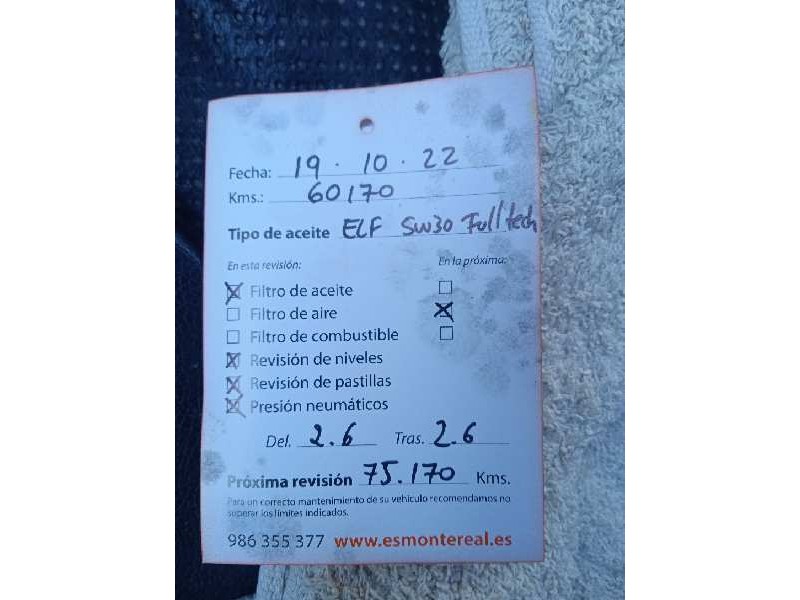 Fecha: 19 . 10 . 22
Kms.: 60170
Tipo de aceite ELF 5W30 Fulltech
En esta revisión: En la próxima:
Filtro de aceite
Filtro de aire
Filtro de combustible
Revisión de niveles
Revisión de pastillas
Presión neumáticos
Del. 2.6 Tras. 2.6
Próxima revisión 75.170 Kms.
Para un correcto mantenimiento de su vehículo recomendamos no
superar los límites indicados.
986 355 377 www.esmontereal.es